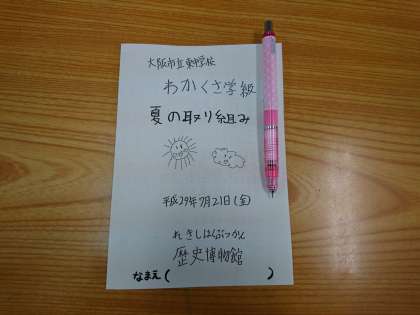 大阪市立東中学校
わかくさ学級
夏の取り組み
平成29年7月21日(金)
れきしはくぶつかん
歴史博物館
なまえ( )